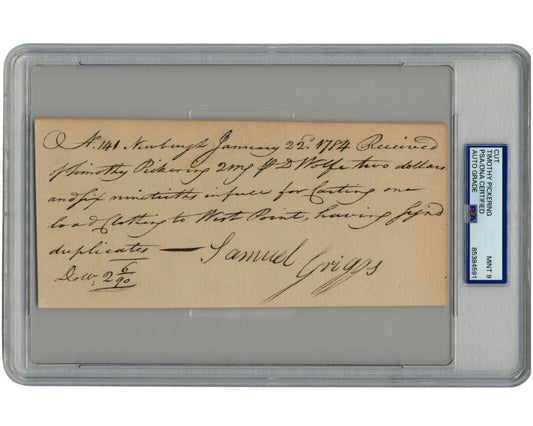 No. 141 Newburgh January 22d. 1784 Received
of Timothy Pickering 2mg D Wolfe two dollars
and six ninetieths in full for Carting one
load Clothing to West Point, having sign'd
duplicates —
Samuel Griggs
Dolls, 2 6/90
CUT
TIMOTHY PICKERING
PSA/DNA CERTIFIED
AUTO GRADE PSA
MINT 9
85384591